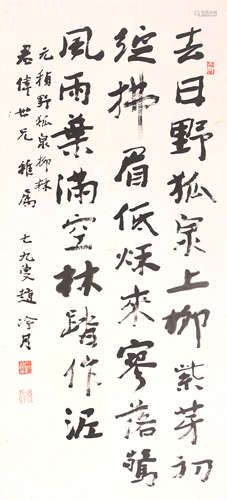 去日野狐泉上柳紫芽初
綻拂眉低秋來寥落驚
風雨葉滿空林踏作泥
元稹野狐泉柳林
君偉世兄雅属 七九叟趙冷月